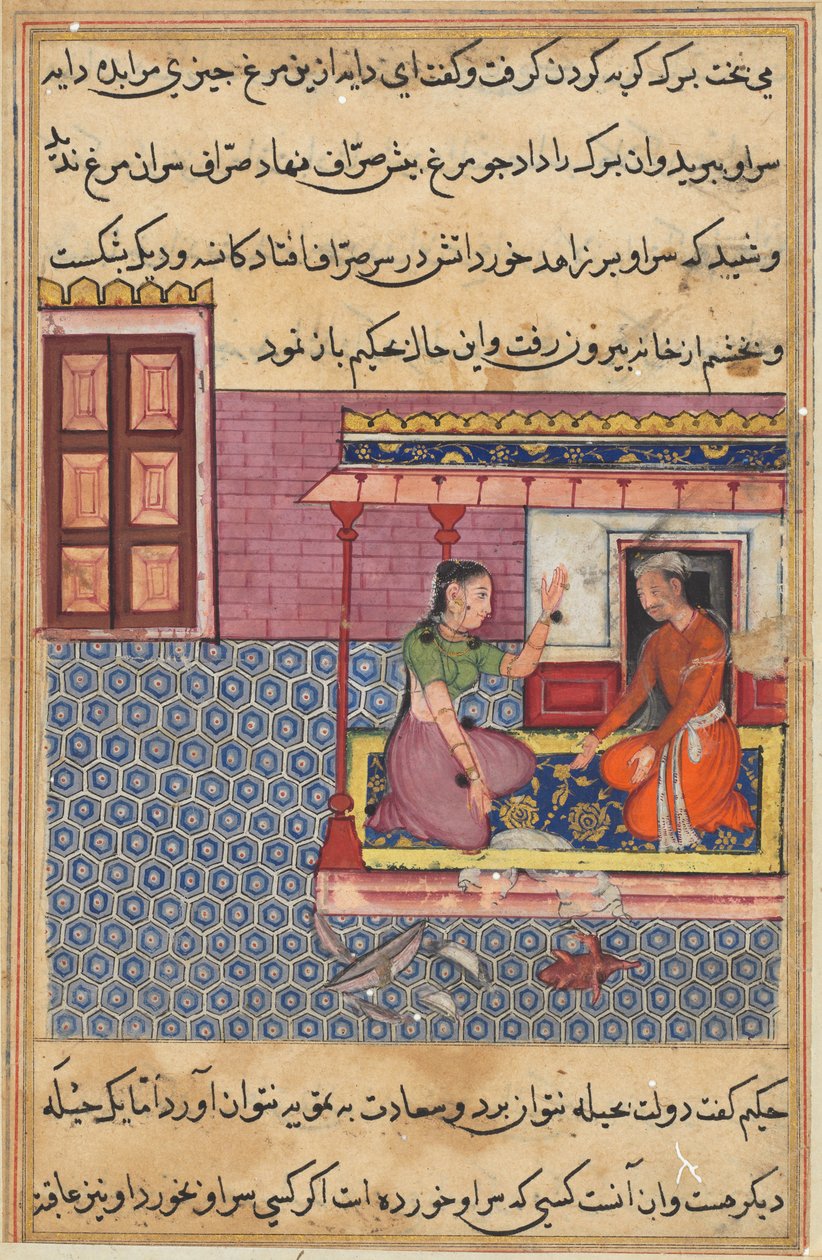 می بخت برک کریه کردن کرفت و کفت ای دایه ازین مرغ چیزی مرا بده دایه
سر او ببرید و ان برک را داد جو مرغ پیش صرّاف نهاد صرّاف سر ان مرغ ندید
و شنید که سر او پسر زاهد خورد اتش در سر صرّاف افتاد کاسه و دیک بشکست
و بخشم از خانه بیرون رفت و این حال بحکیم باز نمود
حکیم کفت دولت بحیله نتوان برد و سعادت به تعوید نتوان آورد امّا یک حیله
دیکر هست و ان آنست کسی که سر او خورده است اکر کسی سر او بخورد او نیز عاقبت